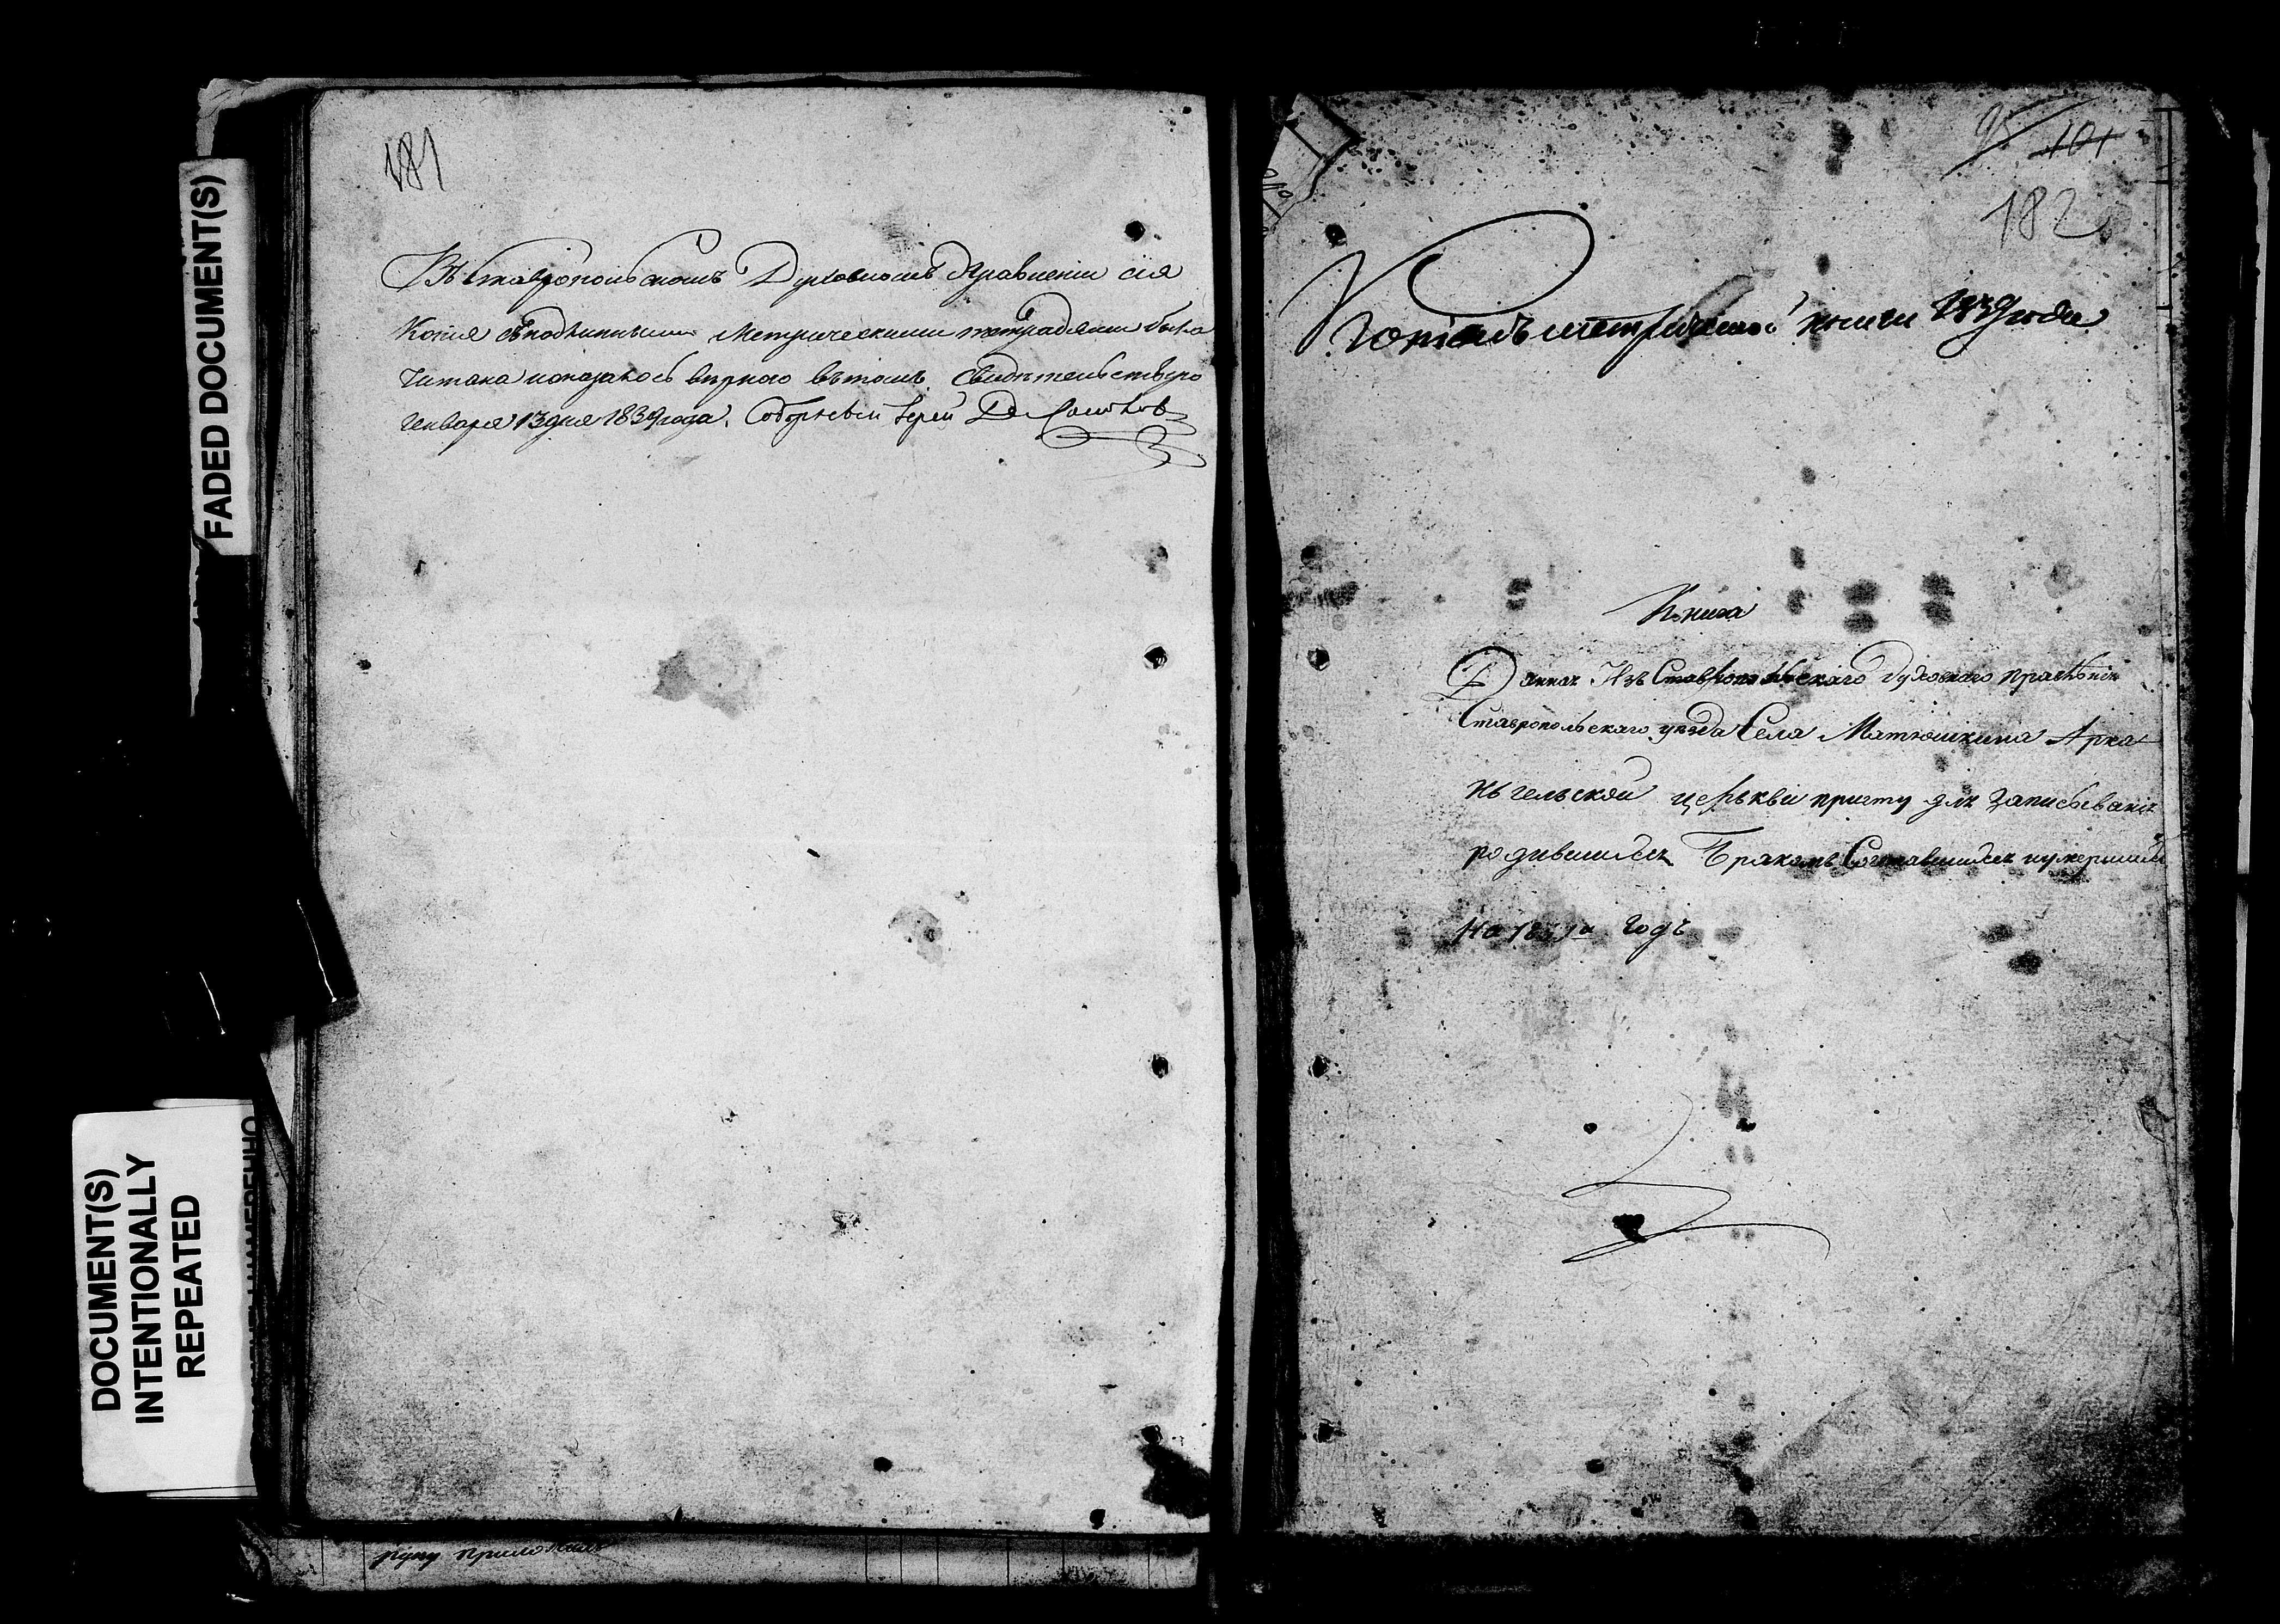 FADED DOCUMENT(S)
DOCUMENT(S)
INTENTIONALLY
REPEATED
181
Въ Ставропольскомъ Духовномъ Правленіи сія
Копія съ подлинными метрическими тетрадями была
читана и оказалось вѣрною въ томъ свидѣтельствую
Генваря 13 дня 1839 года. Соборный Іерей
руку приложилъ
95 101
182
Копія съ метрической книги 1839 года
Книга
Данная Изъ Ставропольскаго Духовнаго правленія
Ставропольскаго уѣзда Села Матюшкина Арха
нъгельской церькви причту для записыванія
родившихся Бракомъ Сочетавшихся и умершихъ
На 1839й Годъ